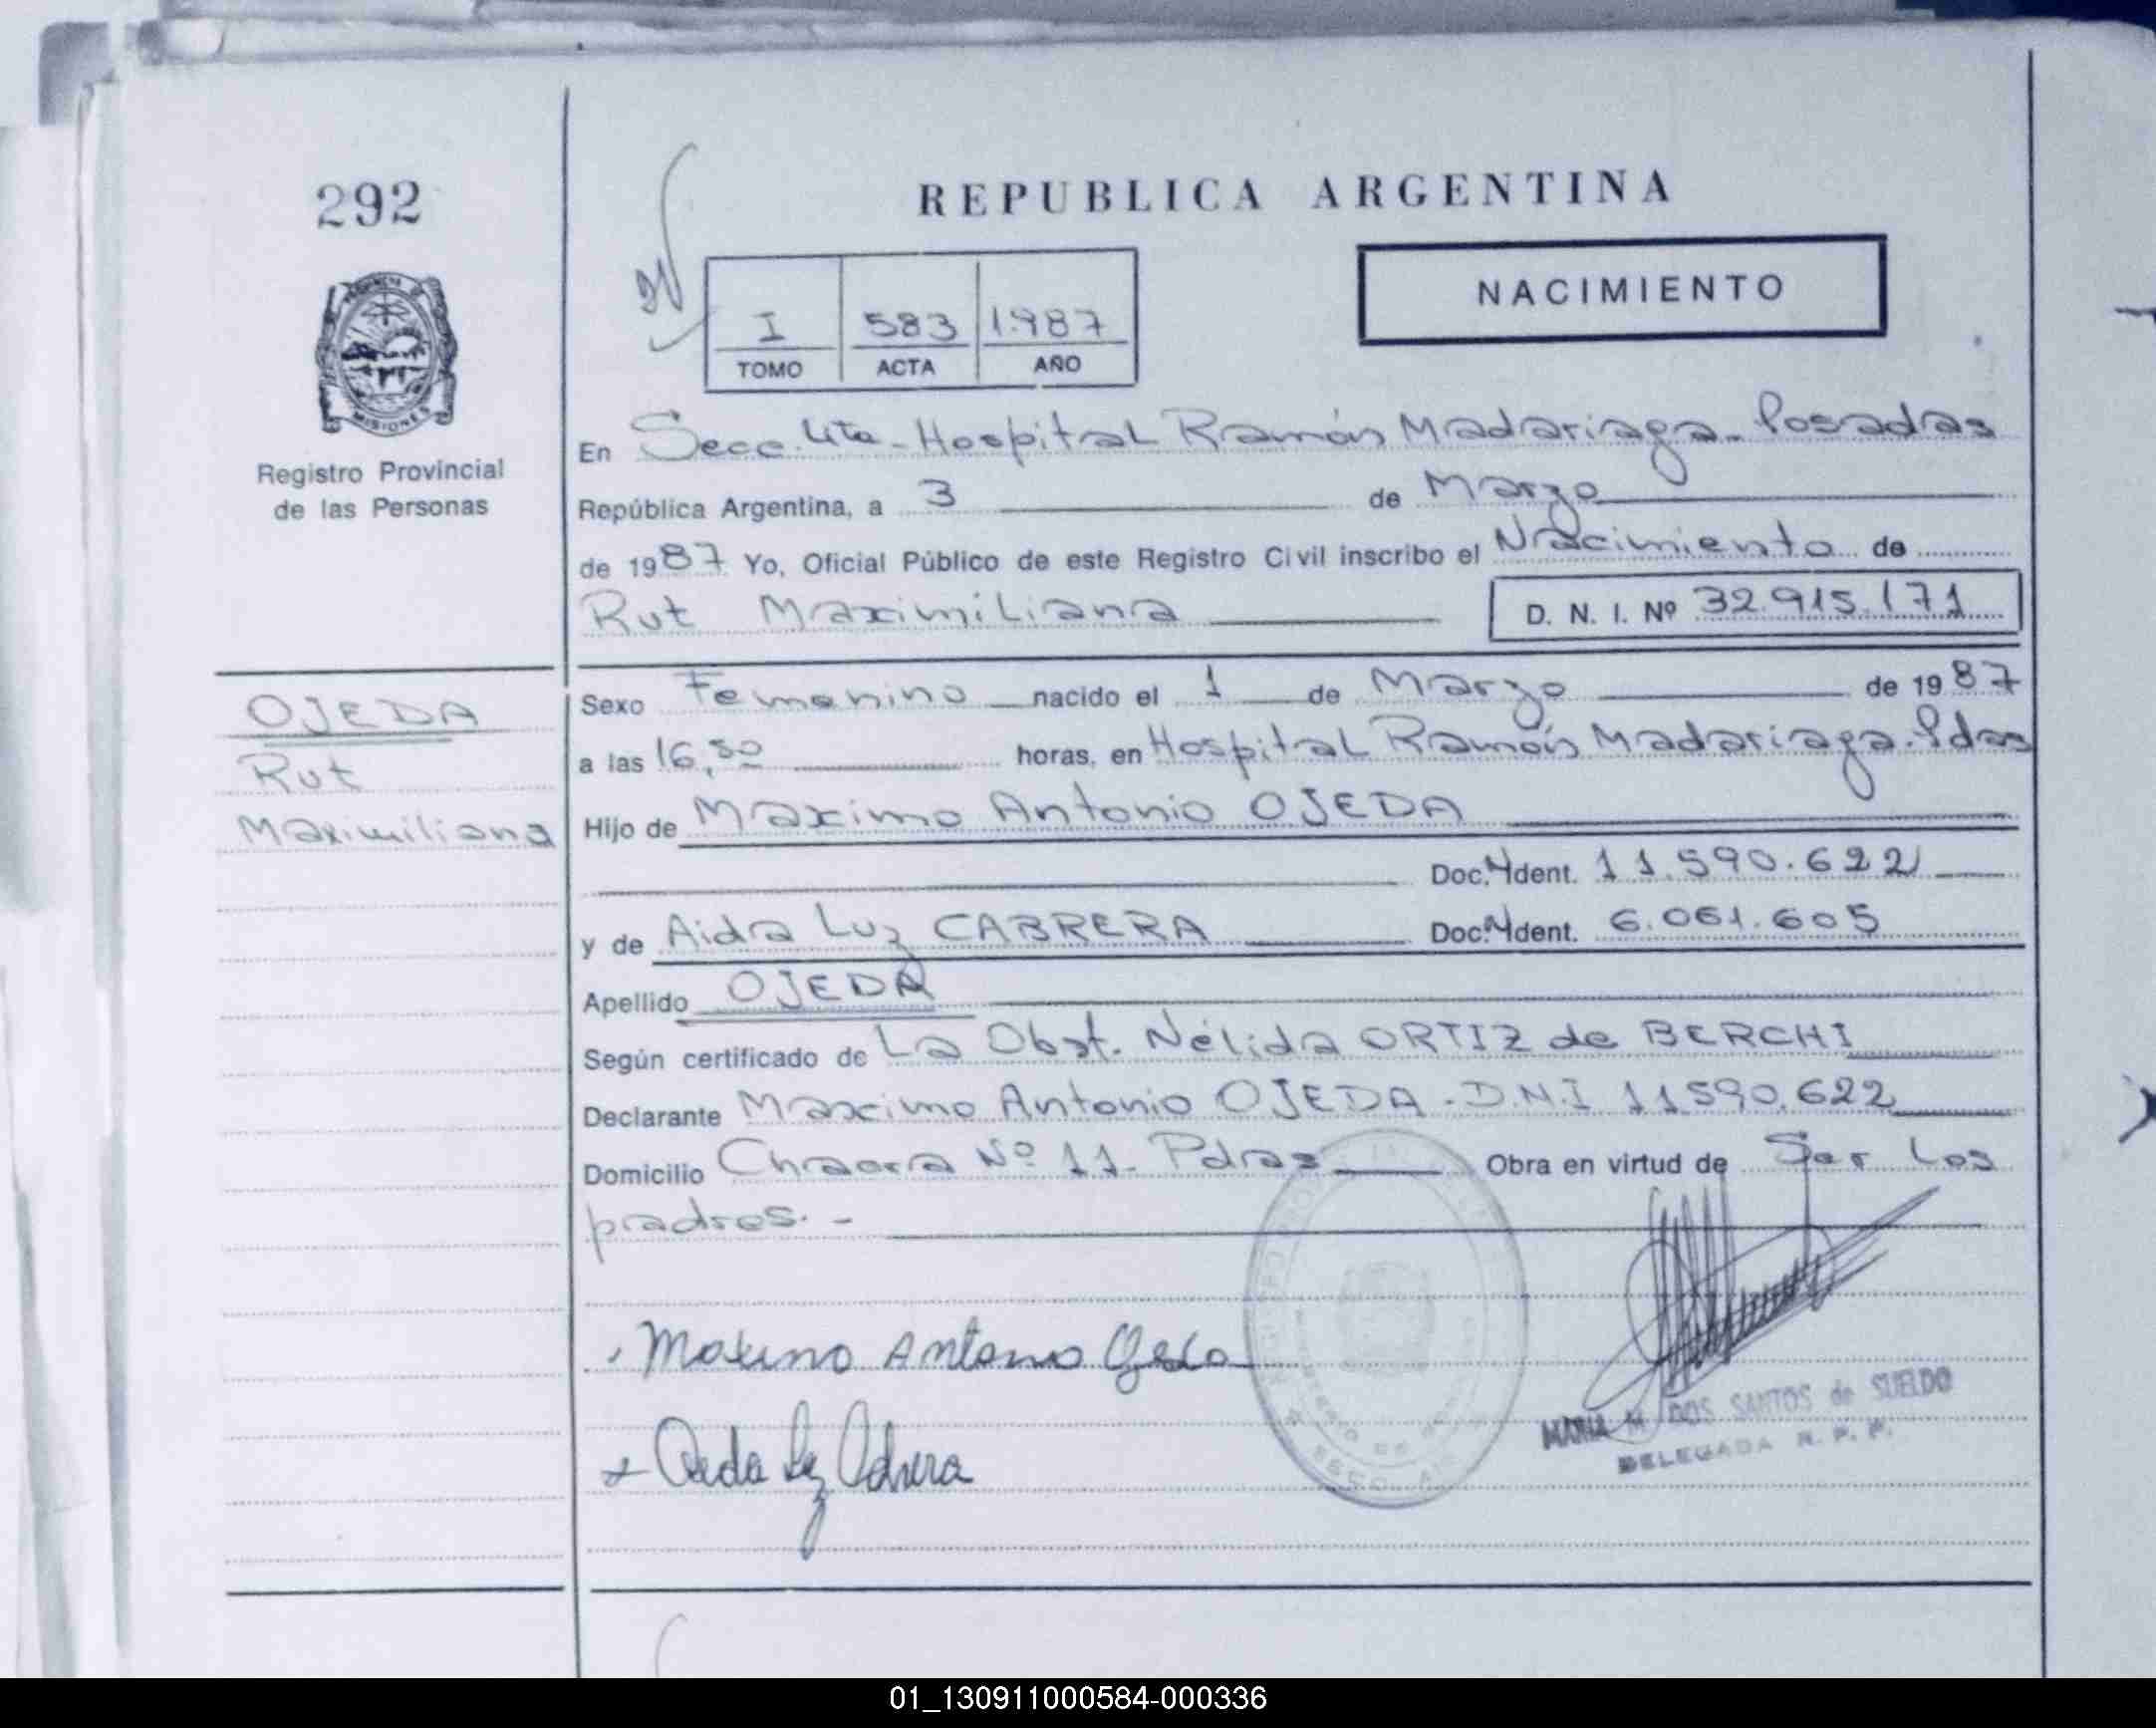 292
REPUBLICA ARGENTINA
NACIMIENTO
I 583 1.987
TOMO ACTA AÑO
MISIONES
Registro Provincial
de las Personas
En Secc. 4ta - Hospital Ramón Madariaga - Posadas
República Argentina, a 3 de Marzo
de 1987 Yo, Oficial Público de este Registro Civil inscribo el Nacimiento de
Rut Maximiliana D. N. I. Nº 32.915.171
OJEDA
Rut
Maximiliana
Sexo Femenino nacido el 1 de Marzo de 1987
a las 16,50 horas, en Hospital Ramón Madariaga. Pdas
Hijo de Maximo Antonio OJEDA
Doc. Ident. 11.590.622
y de Aida Luz CABRERA Doc. Ident. 6.061.605
Apellido OJEDA
Según certificado de La Obst. Nélida ORTIZ de BERCHI
Declarante Maximo Antonio OJEDA - D.N.I 11590.622
Domicilio Chacra Nº 11- Pdas Obra en virtud de Ser Los
padres. -
Maximo Antonio Ojeda
Aida Luz Cabrera
MARIA M DOS SANTOS de SUELDO
DELEGADA R. P. P.
01_130911000584-000336